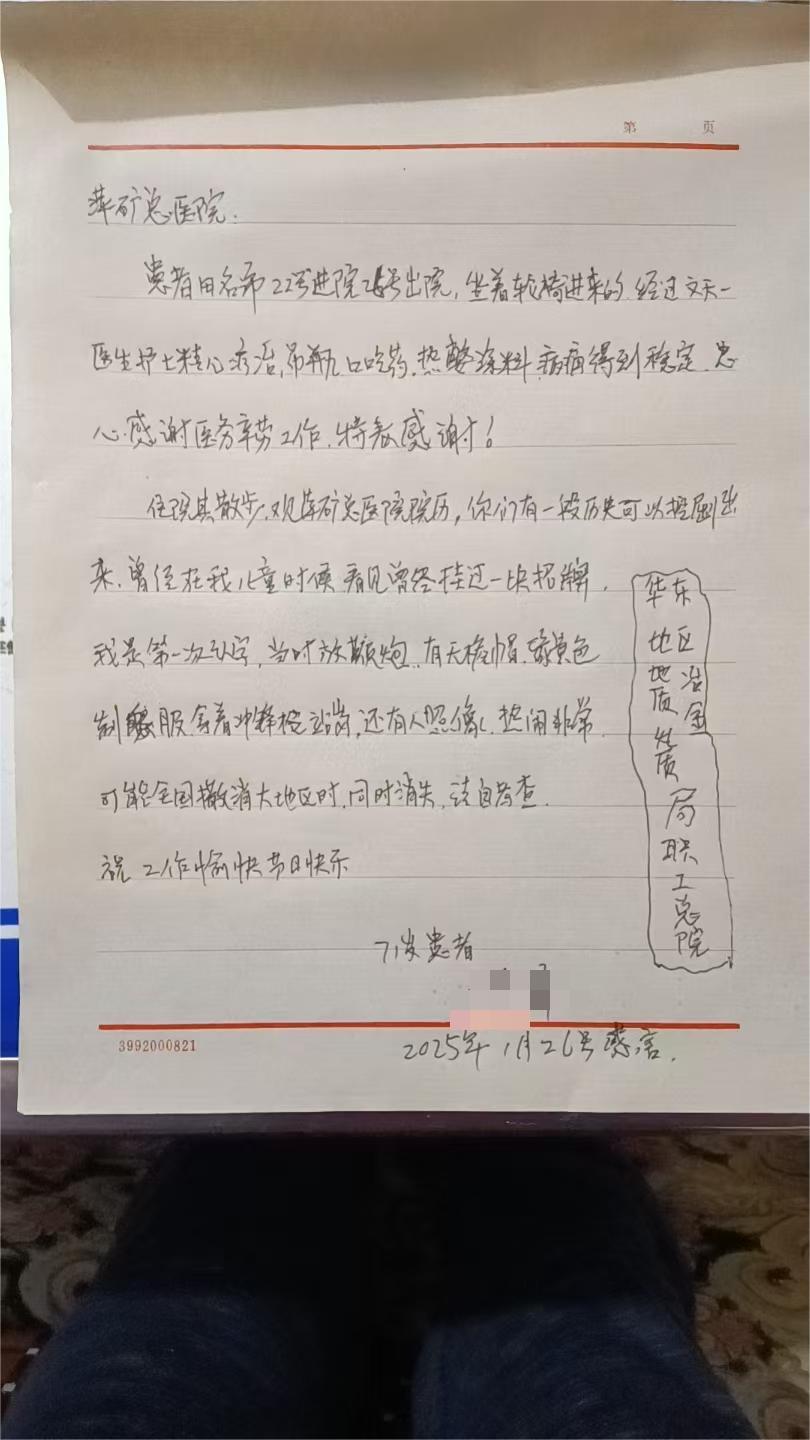 第 页
萍矿总医院.
患者因名币22号进院26号出院,坐着轮椅进来的 经过文天一
医生护士精心疗治,吊瓶 口吃药.热 涂料.病痛得到稳定.忠
心.感谢医务辛劳工作.特致感谢!
住院其散步.观萍矿总医院院历,你们有一段历史可以挖掘出
来.曾经在我儿童时候看见曾经挂过一块招牌.
我是第一次认字,当时放颗炮.有无檐帽.绿黄色
制服.拿着冲锋枪站岗,还有人照像.热闹非常.
可能全国撤消大地区时.同时消失.请自考查.
祝 工作愉快节日快乐
华东
地区
地质冶金
局
职
工
总
院
71岁患者
3992000821
2025年1月26号感言.